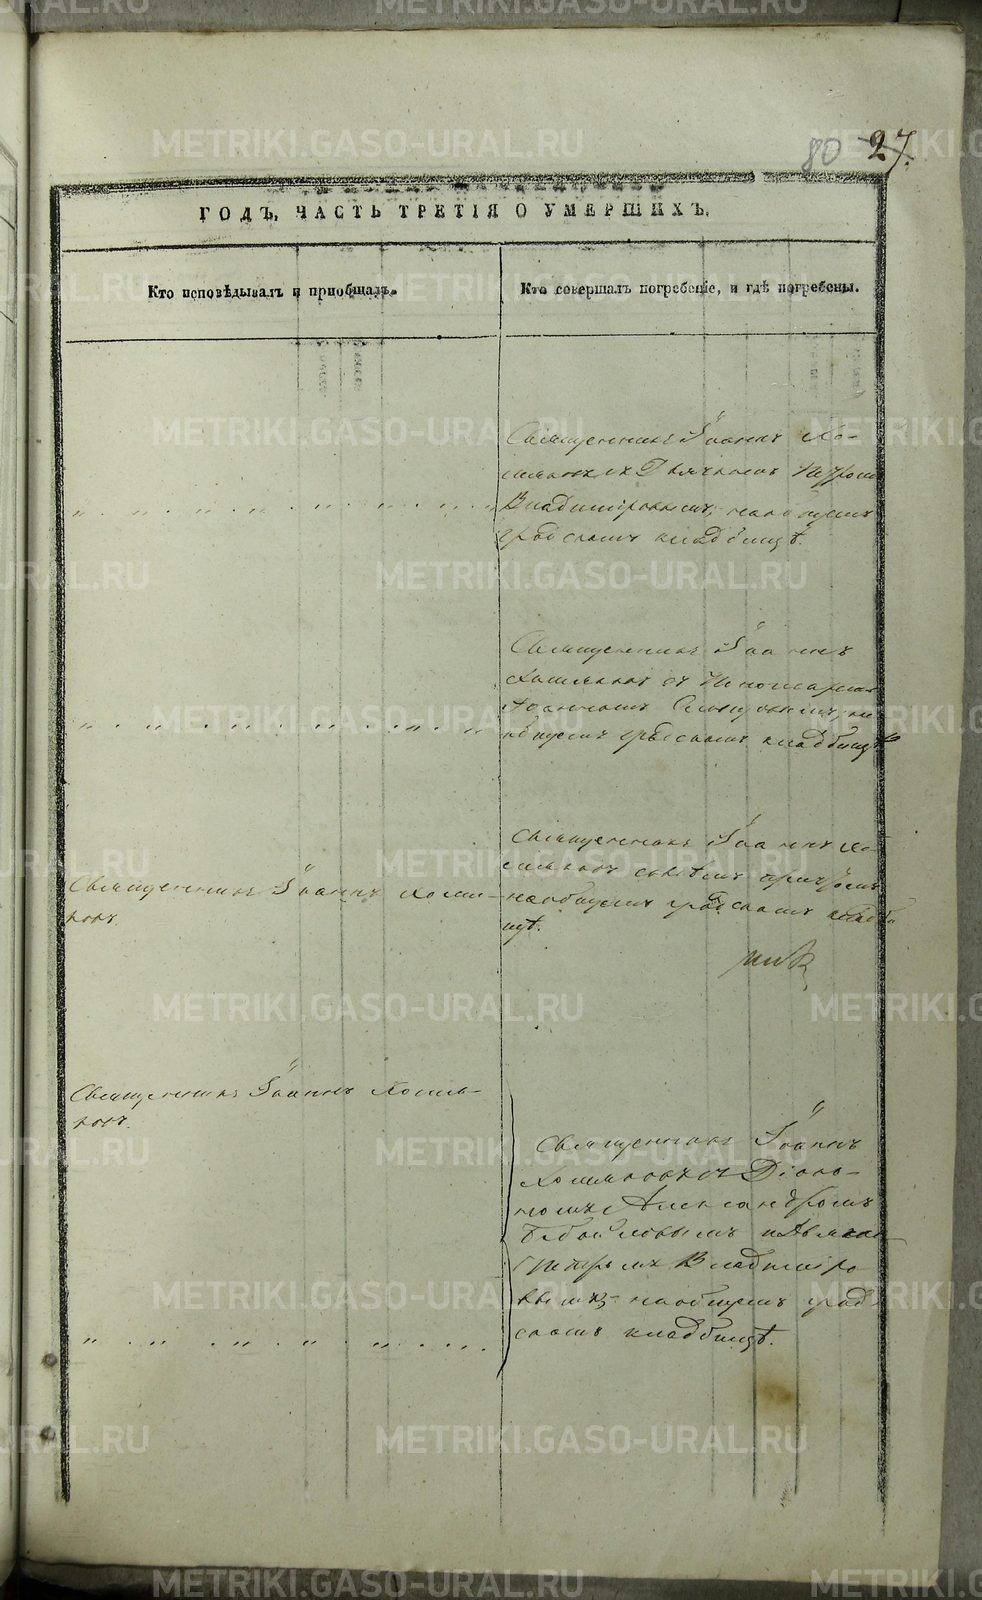 80 27.
ГОДЪ, ЧАСТЬ ТРЕТІЯ О УМЕРШИХЪ.
Кто исповѣдывалъ и пріобщалъ.
Кто совершалъ погребеніе, и гдѣ погребены.
Священникъ Іоаннъ Хо-
мяковъ съ Дьячкомъ Петромъ
Владиміровымъ, на общемъ
градскомъ кладбищѣ.
Священникъ Іоаннъ
Хомяковъ съ Пономаремъ
Іоанномъ на
общемъ градскомъ кладбищѣ
Священникъ Іоаннъ Хомя-
ковъ.
Священникъ Іоаннъ Хо-
мяковъ съ причтомъ
на общемъ градскомъ кладби
щѣ.
Священникъ Іоаннъ Хомя-
ковъ.
Священникъ Іоаннъ
Хомяковъ съ Діако-
номъ Александромъ
Петромъ Владиміро
вымъ, на общемъ град
скомъ кладбищѣ.
METRIKI.GASO-URAL.RU